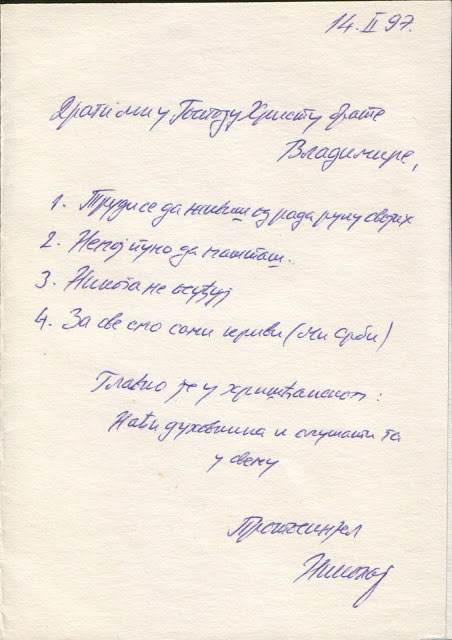 14. II 97.
Драги ми у Господу Христу брате
Владимире,
1. Труди се да живиш од рада руку својих
2. Немој пуно да машташ.
3. Никога не осуђуј
4. За све смо сами криви (ми Срби)
Главно је у хришћанском:
Наћи духовника и слушати га
у свему
Протосинђел
Николај